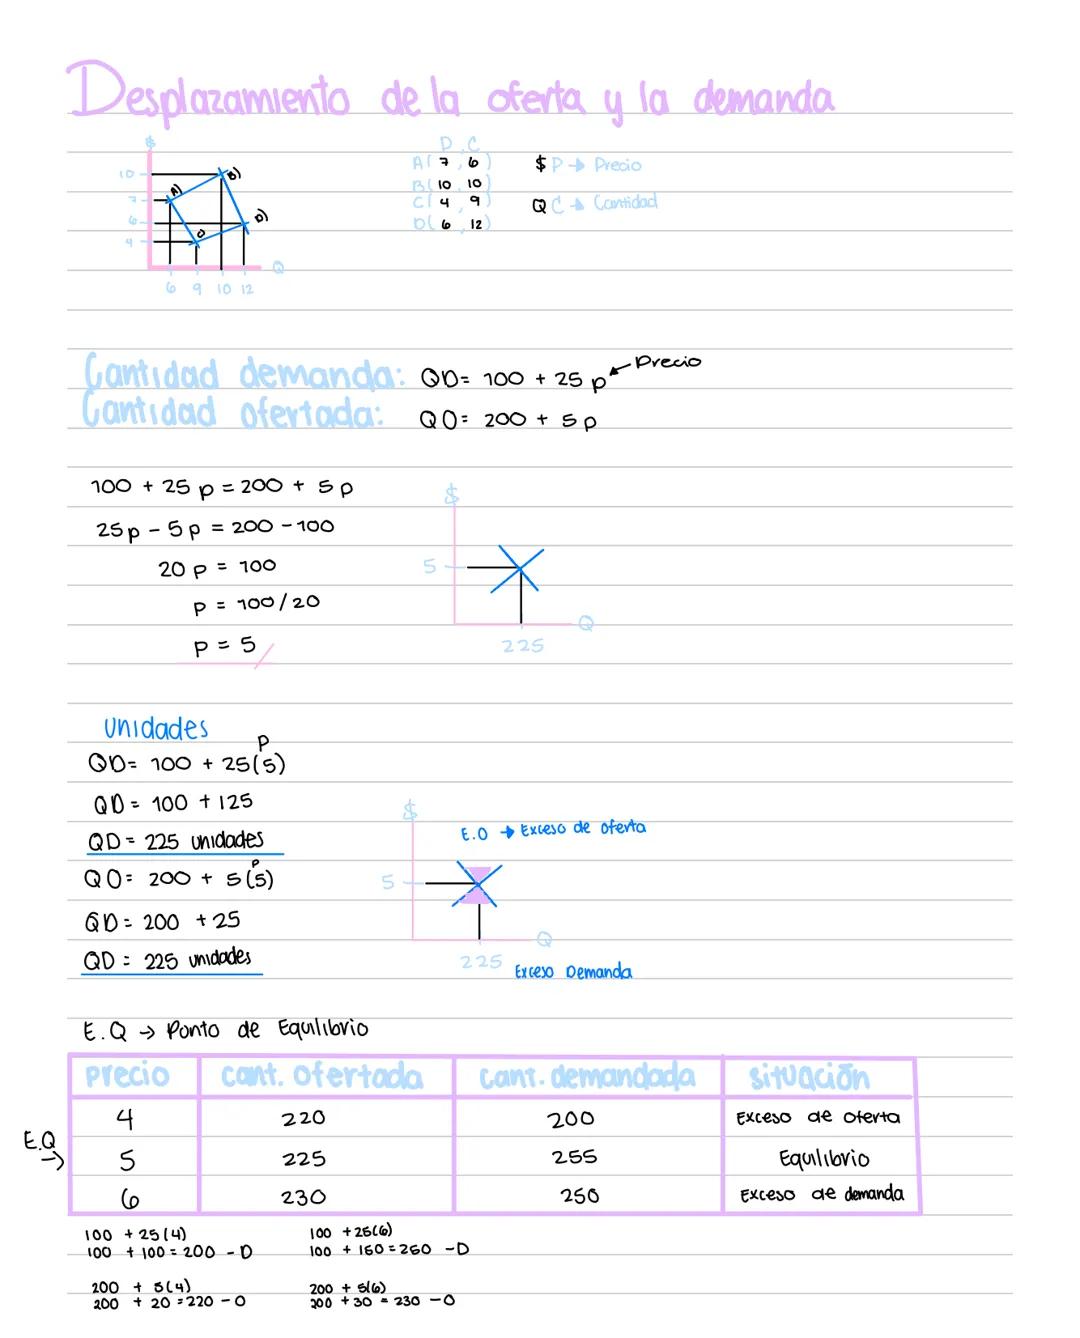 Desplazamiento de la oferta y la demanda
$
10
7
6
4
A)
B)
C)
D)
Q
6 9 10 12
D, C
A( 7 , 6 )
B( 10 , 10
C( 4 , 9 )
D( 6 , 12 )
$ P → Precio
Q C → Cantidad
Cantidad demanda: QD= 100 + 25 p ← Precio
Cantidad ofertada: QO= 200 + 5p
100 + 25 p = 200 + 5p
25p - 5p = 200 - 100
20 p = 100
p = 100/20
p = 5
$
5
Q
225
Unidades
P
QD= 100 + 25(5)
QD = 100 + 125
QD = 225 unidades
P
QO= 200 + 5(5)
QD = 200 + 25
QD = 225 unidades
$
E.O → Exceso de oferta
5
Q
225
Exceso Demanda
E.Q → Punto de Equilibrio
precio cant. ofertada cant. demandada situación
4 220 200 Exceso de oferta
E.Q →
5 225 255 Equilibrio
6 230 250 Exceso de demanda
100 + 25(4)
100 + 100 = 200 - D
100 + 25(6)
100 + 150 = 250 - D
200 + 5(4)
200 + 20 = 220 - O
200 + 5(6)
200 + 30 = 230 - O